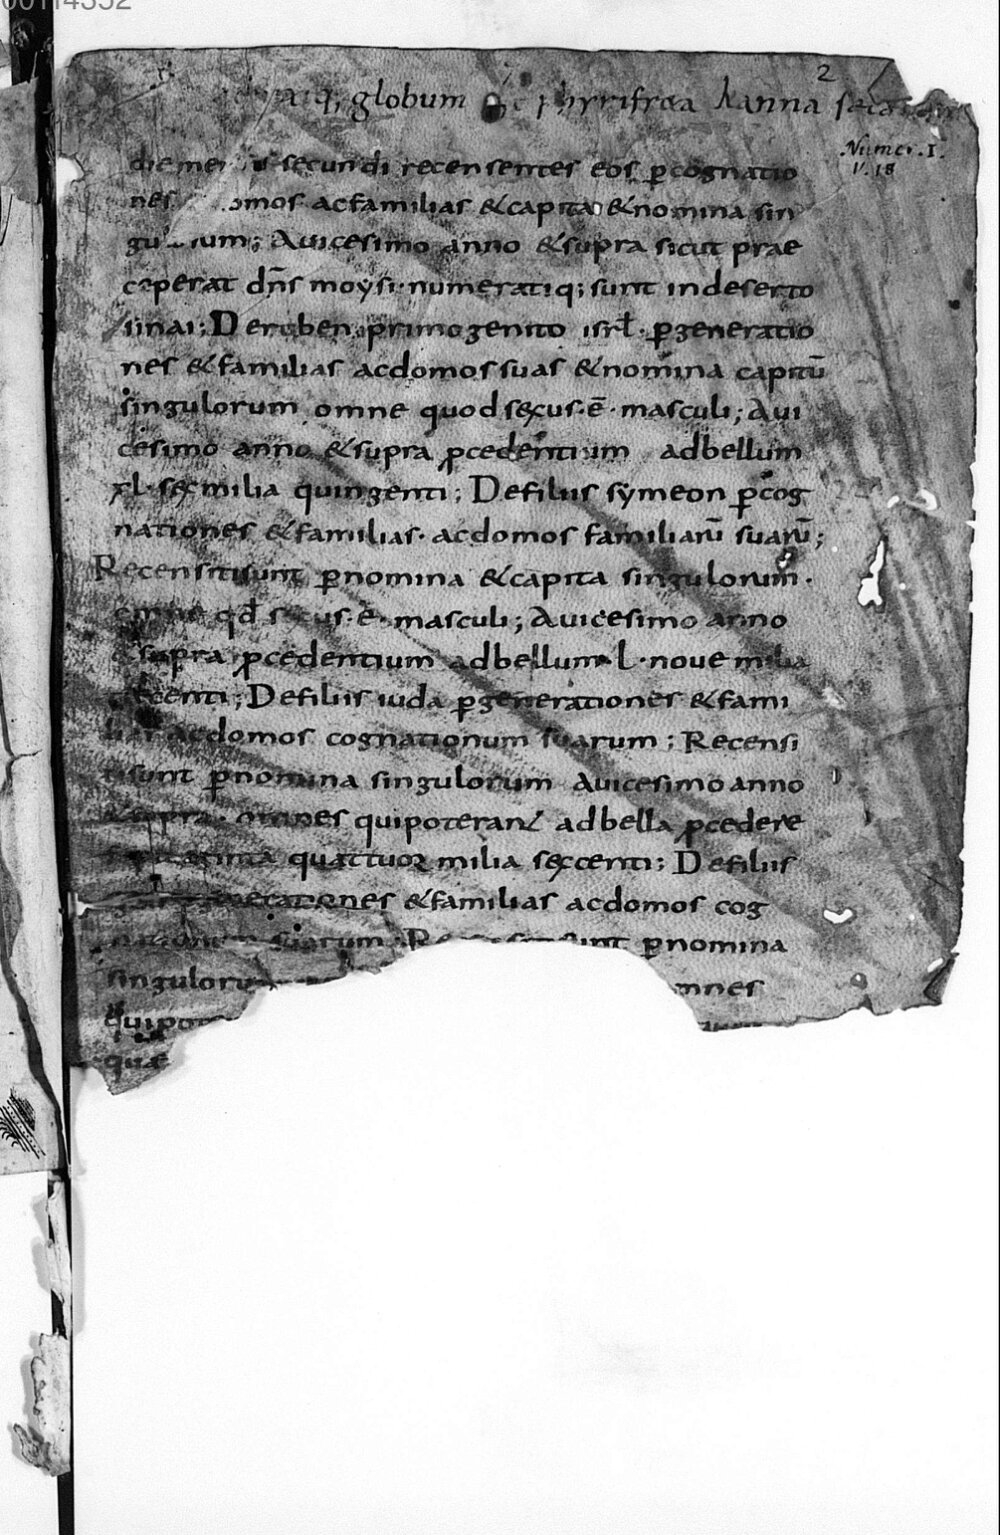 00114352
2
globum hanna
Numer. I.
V. 18
die secundi recensentes eos ꝑcognatio
nes acfamilias &capita &nomina sin
Auicesimo anno &supra sicut prae
ceperat dn̄s moysi· numeratiq; sunt indeserto
sinai; Deruben primogenito isrl̄· ꝑgeneratio
nes &familias acdomossuas &nomina capitū
singulorum omne quod sexus·ē· masculi; Aui
cesimo anno &supra ꝓcedentium adbellum
xl· sex milia quingenti; Defiliis symeon ꝑcog
nationes &familias· acdomos familiarū suarū;
Recensitisunt ꝑnomina &capita singulorum·
omne qd̄ sexus·ē· masculi; Auicesimo anno
&supra ꝓcedentium adbellum· L· nouem milia
Defiliis iuda ꝑgenerationes &fami
lias acdomos cognationum suarum; Recensi
tisunt ꝑnomina singulorum Auicesimo anno
&supra· omnes quipoterant adbella ꝓcedere
quattuor milia sexcenti; Defiliis
&familias acdomos cog
nationum suarum ꝑnomina
omnes
quae